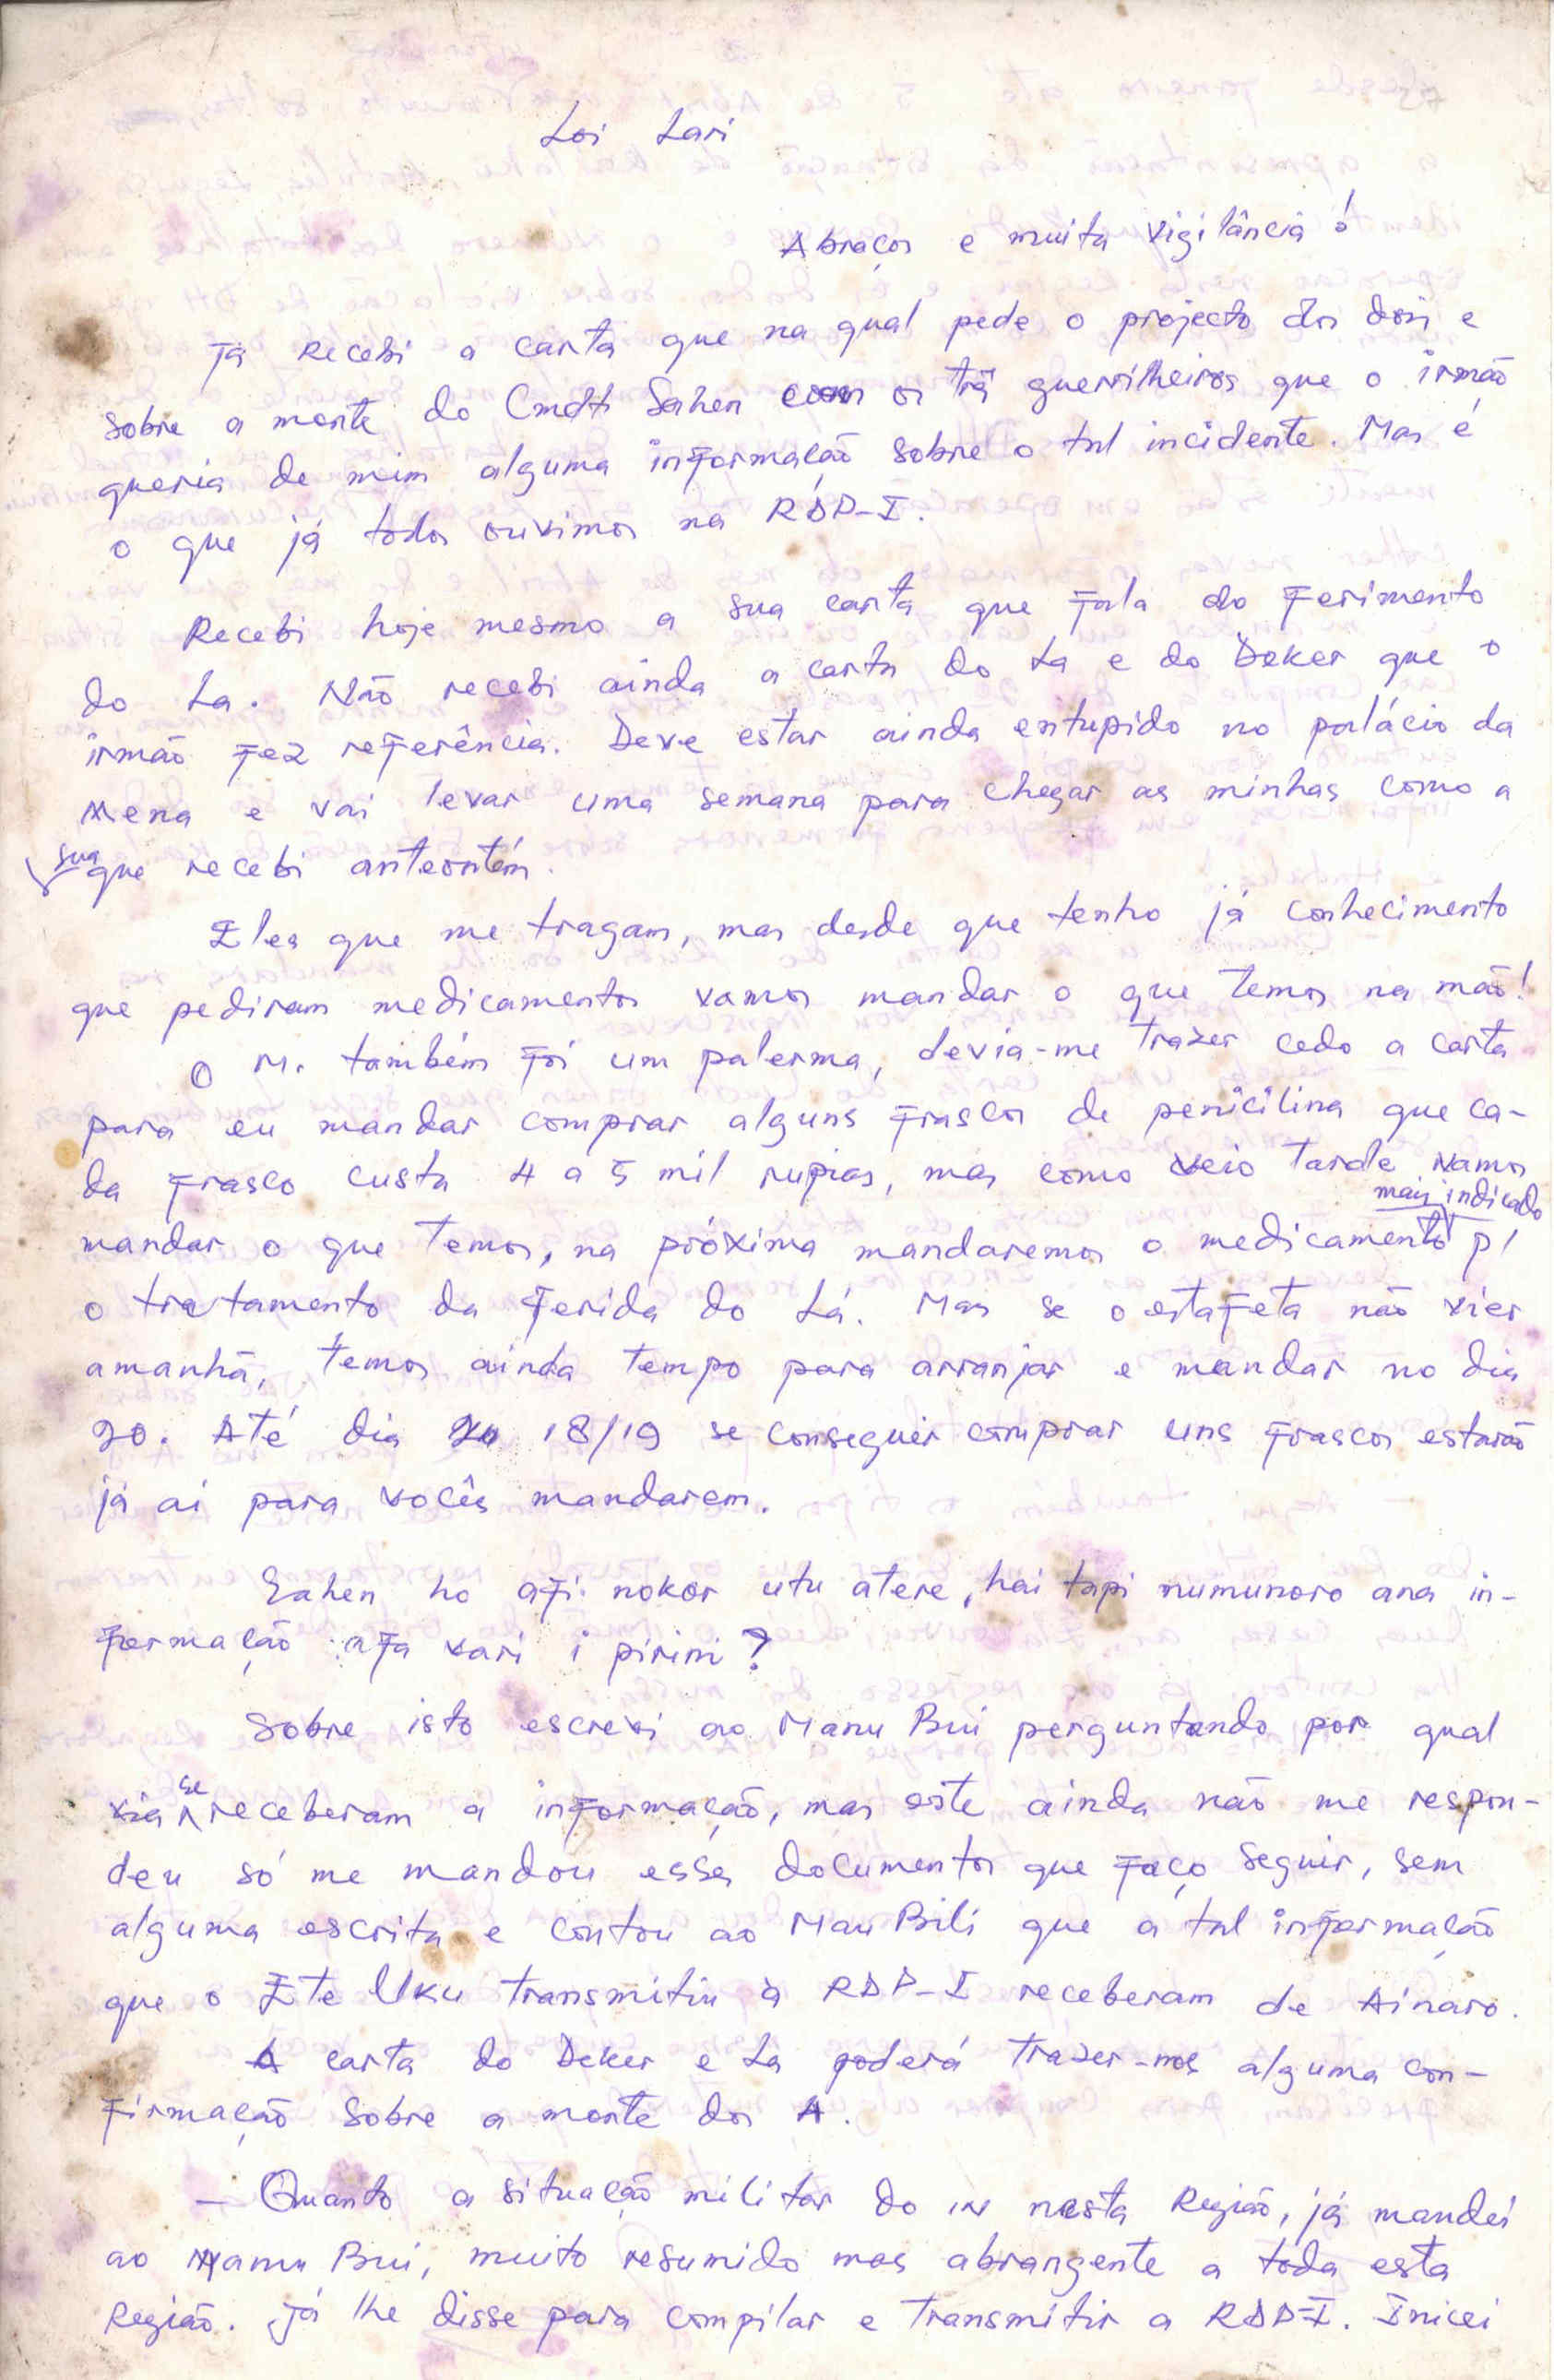 Loi Lari
Abraços e muita vigilância!
Já recebi a carta que na qual pede o projecto dos dois e
sobre a morte do Cmdt Sahen com os três guerrilheiros que o irmão
queria de mim alguma informação sobre o tal incidente. Mas é
o que já todos ouvimos na RDP-I.
Recebi hoje mesmo a sua carta que fala do ferimento
do La. Não recebi ainda a carta do La e do Deker que o
irmão fez referência. Deve estar ainda entupido no palácio da
Mena e vai levar uma semana para chegar as minhas como a
sua que recebi anteontém.
Eles que me tragam, mas desde que tenho já conhecimento
que pediram medicamentos vamos mandar o que temos na mão!
O M. também foi um palerma, devia-me trazer cedo a carta
para eu mandar comprar alguns frascos de penicilina que ca-
da frasco custa 4 a 5 mil rupias, mas como veio tarde vamos
mandar o que temos, na próxima mandaremos o medicamento mais indicado p/
o tratamento da ferida do Lá. Mas se o estafeta não vier
amanhã, temos ainda tempo para arranjar e mandar no dia
20. Até dia 18/19 se conseguir comprar uns frascos estarão
já ai para vocês mandarem.
Sahen ho afi nokor utu atere, hai tapi numunoro ana in-
formação afa vari i pirini?
Sobre isto escrevi ao Manu Bui perguntando por qual
via se receberam a informação, mas este ainda não me respon-
deu só me mandou esses documentos que faço seguir, sem
alguma escrita e contou ao Mau Bili que a tal informação
que o Ete Uku transmitiu à RDP-I receberam de Ainaro.
A carta do Deker e La poderá trazer-nos alguma con-
firmação sobre a morte dos 4.
- Quanto a situação militar do in nesta Região, já mandei
ao Manu Bui, muito resumido mas abrangente a toda esta
Região. Já lhe disse para compilar e transmitir a RDP-I. Inicei